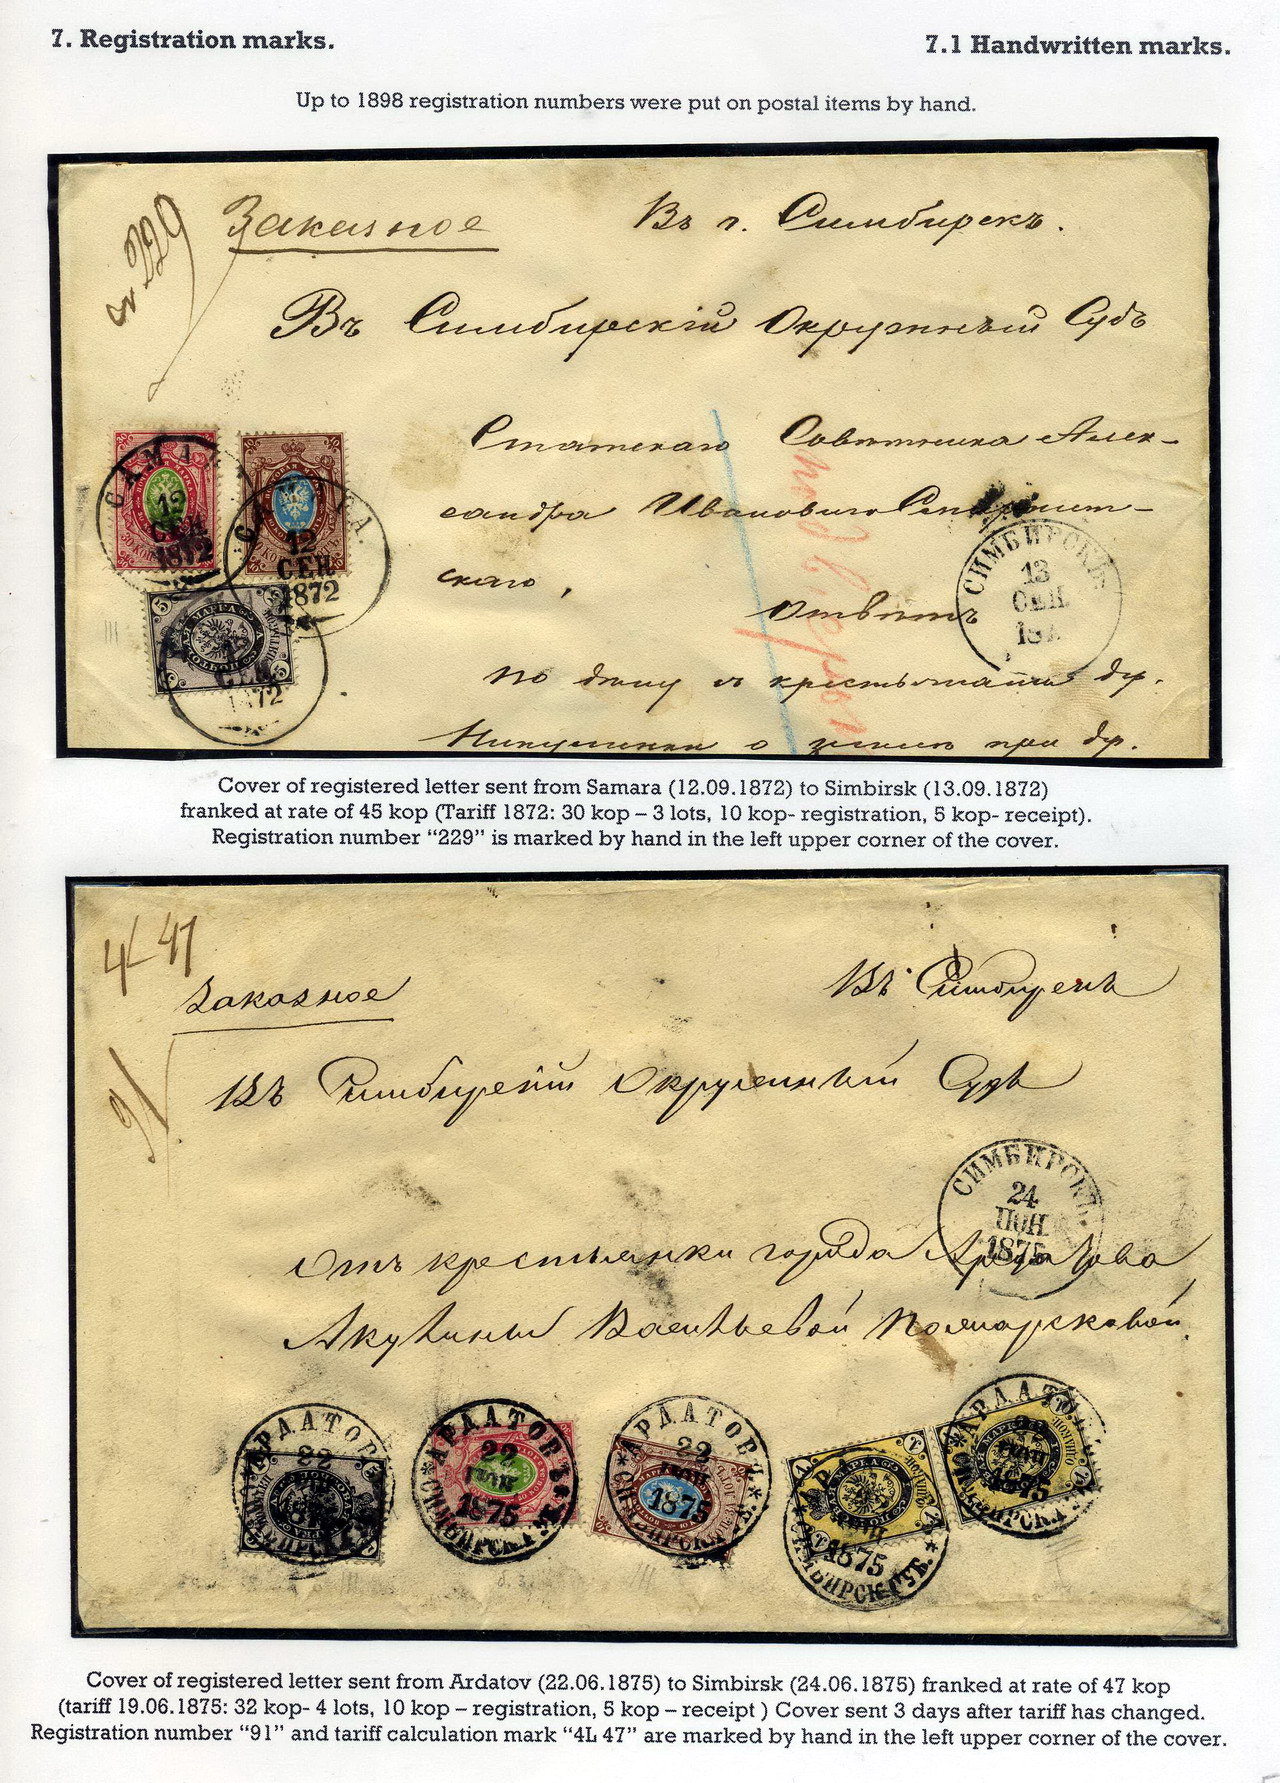 7. Registration marks.
7.1 Handwritten marks.
Up to 1898 registration numbers were put on postal items by hand.
№ 229
Заказное
Въ г. Симбирскъ.
Въ Симбирскій Окружный Судъ
Статскаго Совѣтника Алек-
сандра Ивановича
скаго,
Отвѣтъ
по дѣлу съ крестьянами др.
о землѣ при др.
САМАРА
12
СЕН.
1872
САМАРА
12
СЕН.
1872
СЕН.
1872
СИМБИРСКЪ
13
СЕН.
187
Cover of registered letter sent from Samara (12.09.1872) to Simbirsk (13.09.1872)
franked at rate of 45 kop (Tariff 1872: 30 kop – 3 lots, 10 kop- registration, 5 kop- receipt).
Registration number “229” is marked by hand in the left upper corner of the cover.
4L 47
Заказное
Въ Симбирскъ
91
Въ Симбирскій Окружный Судъ
СИМБИРСКЪ
24
ІЮН.
1875
Отъ крестьянки города Ардатова
Акулины Васильевой
АРДАТОВЪ
22
1875
СИМБИРСКА
АРДАТОВЪ
22
ІЮН
1875
СИМБИРСКА
АРДАТОВЪ
22
ІЮН
1875
СИМБИРСКА
ІЮН
1875
СИМБИРСК. ГУБ.
АРДАТОВЪ
1875
СИМБИРСКА
Cover of registered letter sent from Ardatov (22.06.1875) to Simbirsk (24.06.1875) franked at rate of 47 kop
(tariff 19.06.1875: 32 kop- 4 lots, 10 kop – registration, 5 kop – receipt ) Cover sent 3 days after tariff has changed.
Registration number “91” and tariff calculation mark “4L 47” are marked by hand in the left upper corner of the cover.